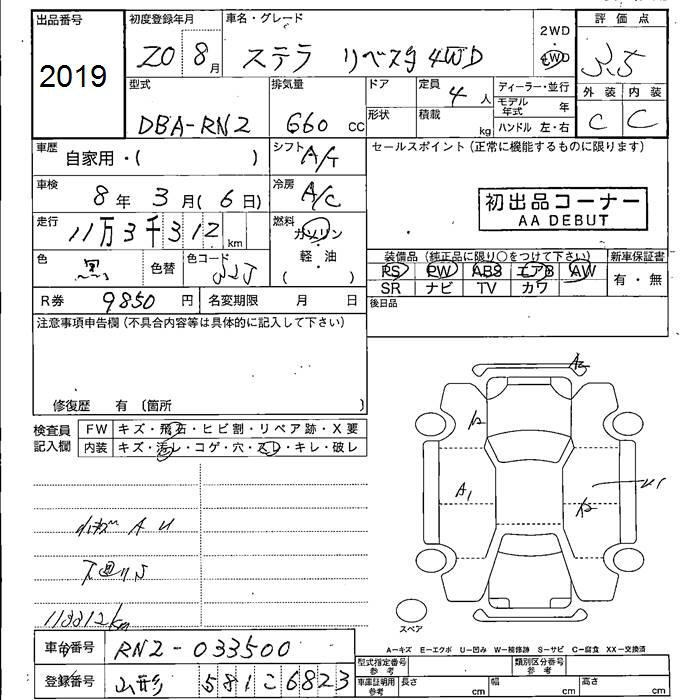 出品番号 2019
初度登録年月 20 8月
車名・グレード ステラ リベスタ 4WD
2WD 4WD
評価点 3.5
外装 C 内装 C
型式 DBA-RN2
排気量 660 cc
ドア
形状
定員 4人
積載 kg
ディーラー・並行
モデル年式 年
ハンドル 左・右
車歴 自家用・( )
シフト A/T
車検 8年3月(6日)
冷房 A/C
走行 11万3千312 km
燃料 ガソリン・軽・油 ( )
色 黒 色替
色コード
R券 9850円
名変期限 月 日
セールスポイント(正常に機能するものに限ります)
初出品コーナー
AA DEBUT
装備品(純正品に限り○をつけて下さい) 新車保証書
PS PW ABS エアB AW 有・無
SR ナビ TV カワ
後日品
注意事項申告欄(不具合内容等は具体的に記入して下さい)
修復歴 有〔箇所 〕
検査員記入欄
FW キズ・飛石・ヒビ割・リペア跡・X要
内装 キズ・汚レ・コゲ・穴・スレ・キレ・破レ
小キズ A U
下廻りS
113312km
A2
A2
A1
A2
U1
スペア
A-キズ E-エクボ U-凹み W-補修跡 S-サビ C-腐食 XX-交換済
車台番号 RN2-033500
登録番号 山形 581 こ 6823
型式指定番号 参考
類別区分番号 参考
車庫証明用 参考 長さ cm 幅 cm 高さ cm